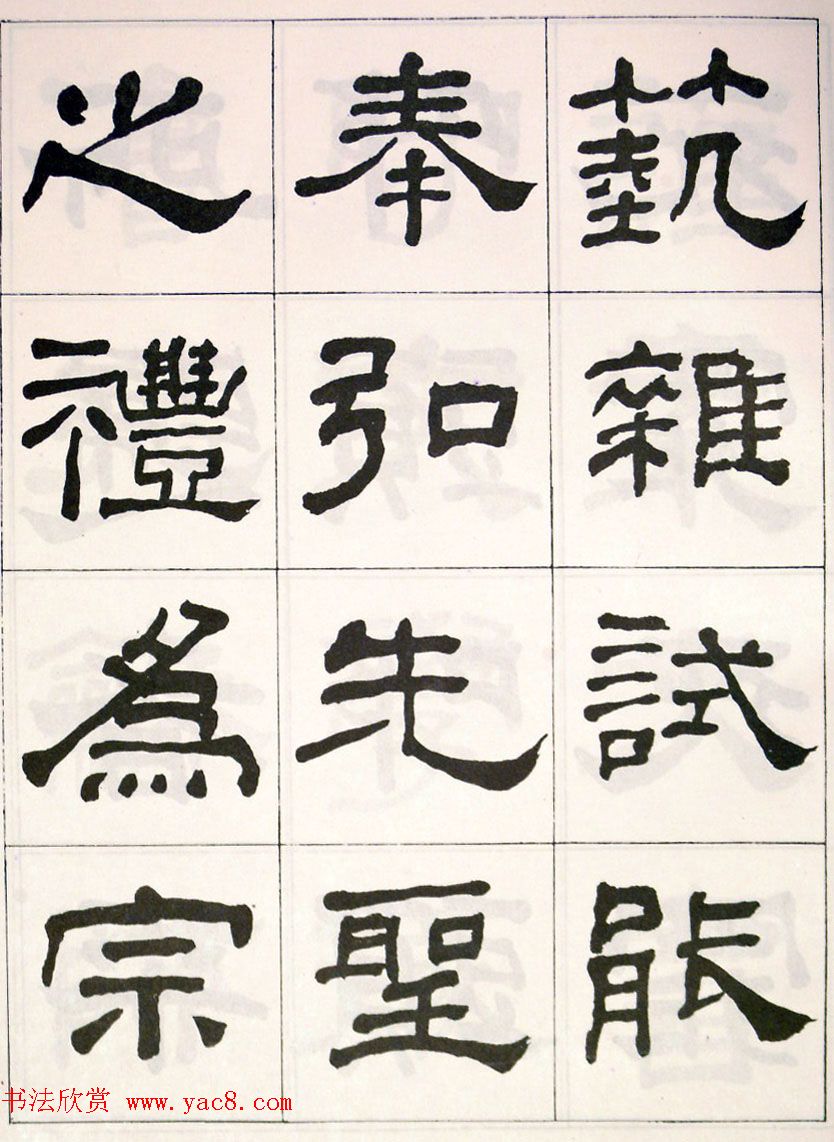 蓺雜試能
奉弘先聖
之禮爲宗
书法欣赏 www.yac8.com